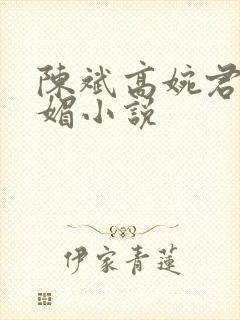 陳斌高婉君
媚小説
伊家青蓮